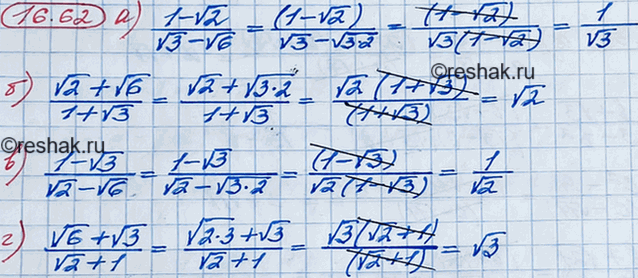 16.62 а) (1-√2)/(√3-√6) = (1-√2)/(√3-√3·2) = (1-√2)/(√3(1-√2)) = 1/√3
reshak.ru
б) (√2+√6)/(1+√3) = (√2+√3·2)/(1+√3) = √2(1+√3)/(1+√3) = √2
reshak.ru
в) (1-√3)/(√2-√6) = (1-√3)/(√2-√3·2) = (1-√3)/(√2(1-√3)) = 1/√2
г) (√6+√3)/(√2+1) = (√2·3+√3)/(√2+1) = √3(√2+1)/(√2+1) = √3
reshak.ru